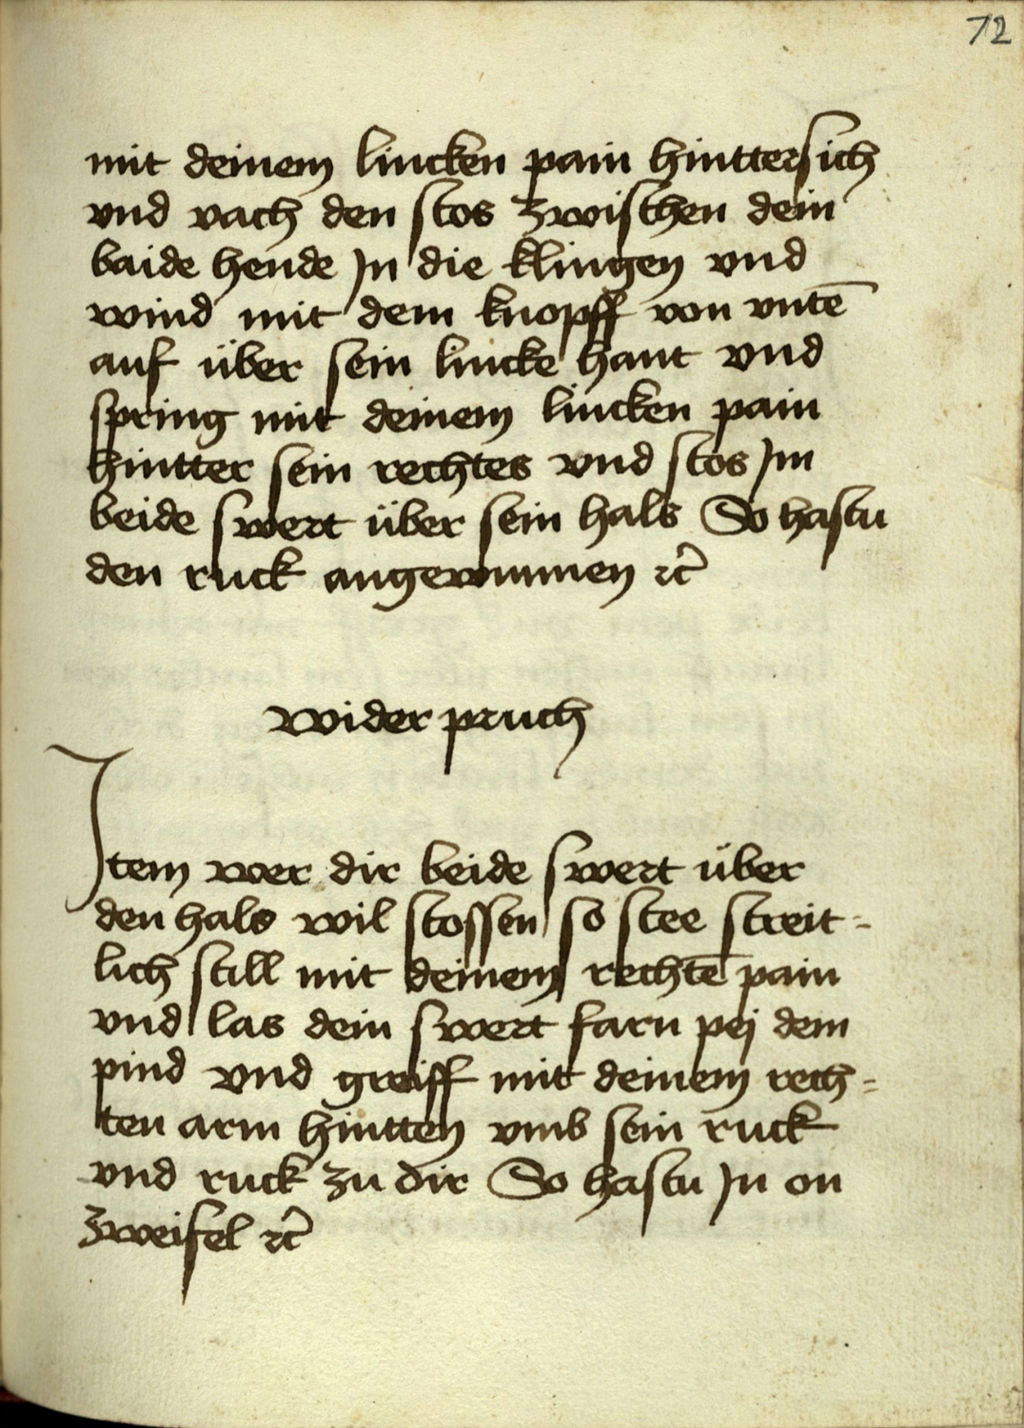 72
mit deinem lincken pain hinttersich
vnd vach den stos zwischen dein
baide hende Jn die klingen vnd
wind mit dem knopff von vntē
auf über sein lincke hant vnd
spring mit deinem lincken pain
hintter sein rechtes vnd stos Jm
beide swert über sein hals So hastu
den ruck angewunnen ꝛc̄
wider pruch
Jtem wer dir beide swert über
den hals wil stossen so stee streit-
lich still mit deinem rechtē pain
vnd las dein swert farn pej dem
pind vnd greiff mit deinem rech-
ten arm hintten vmb sein ruck
vnd ruck zu dir So hastu Jn on
zweifel ꝛc̄